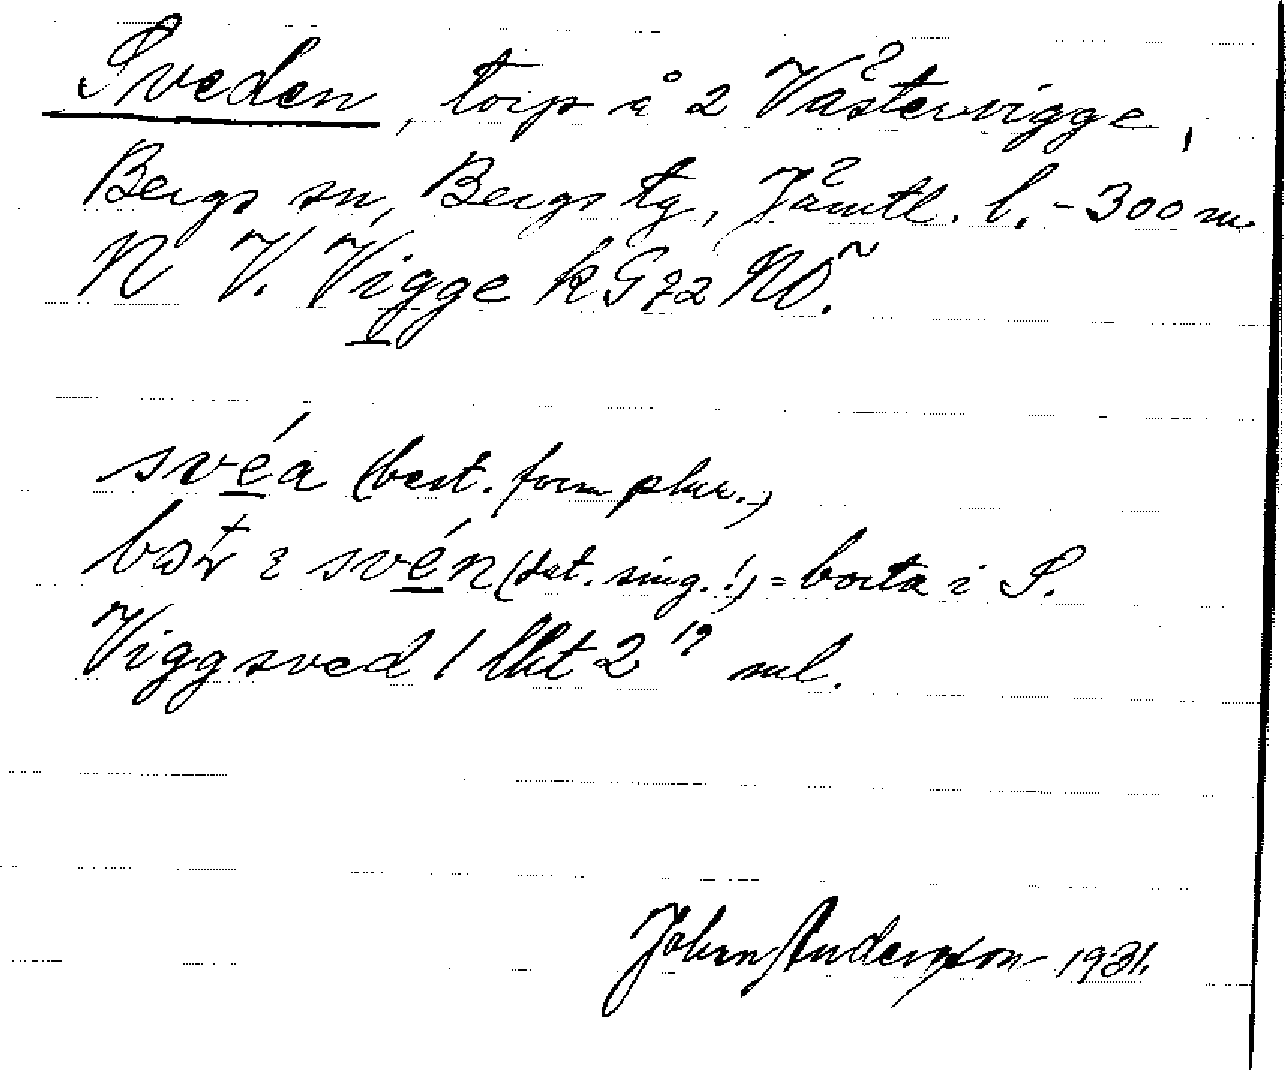 Sveden, torp å 2 Västervigge,
Bergs sn, Bergs tg, Jämtl. l. - 300 m
N V. Vigge k G 72 NO.
svéa (best. form plur.)
svén (dat. sing.!) = borta i S.
Viggsved 1 lht 2¹⁹ ml.
John Andersson 1931.